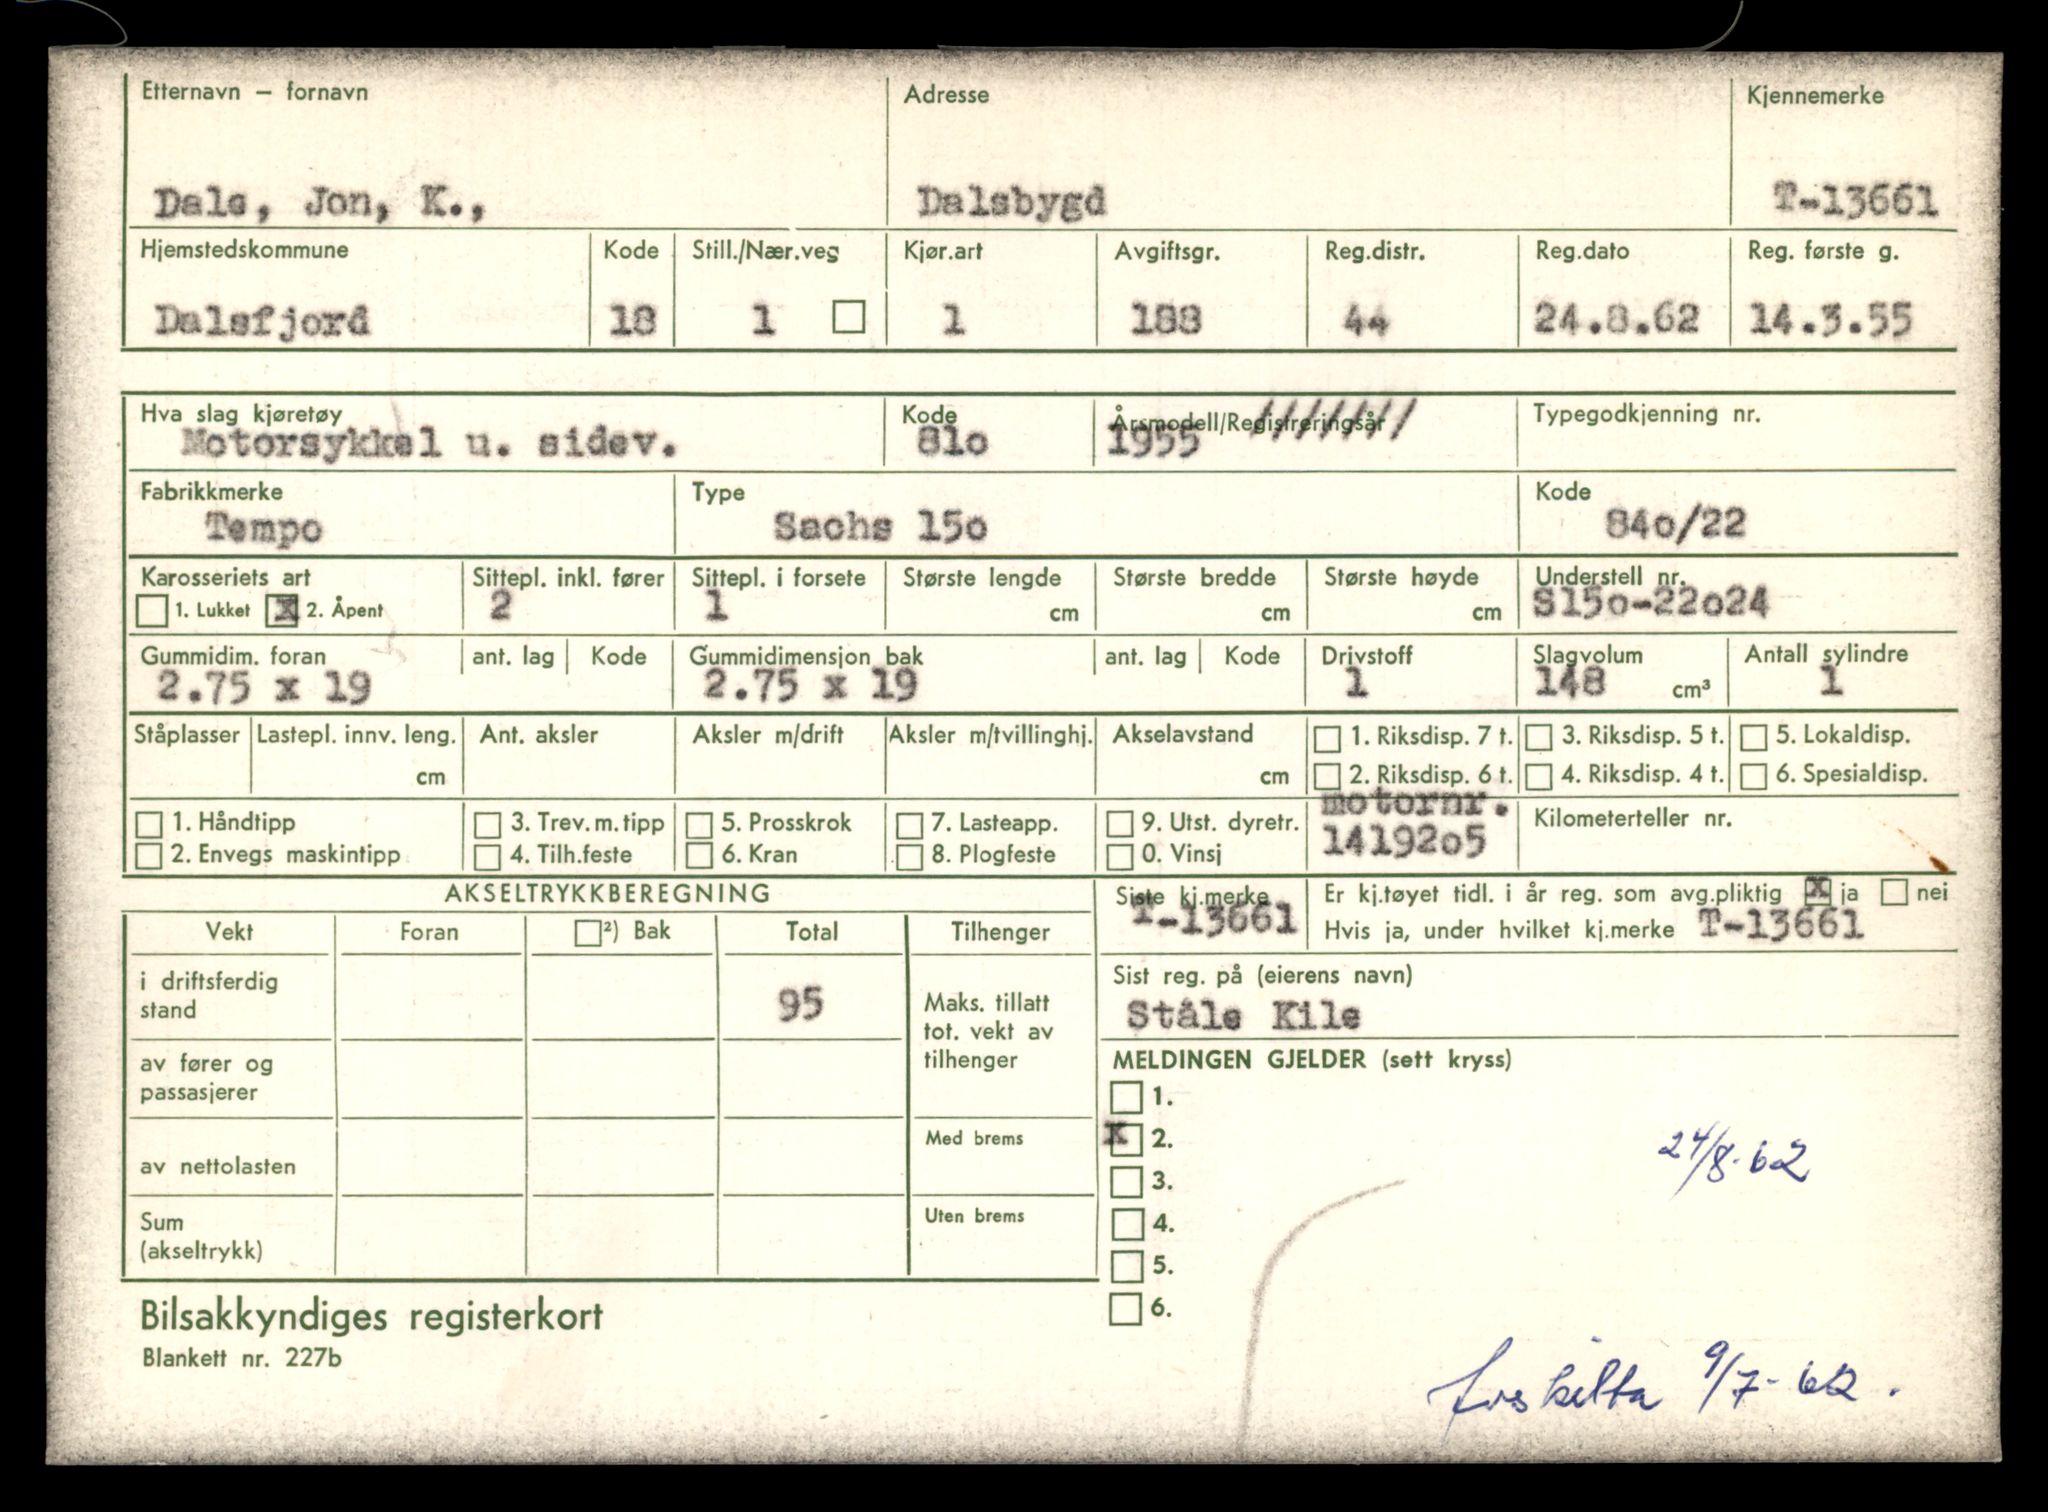 Etternavn – fornavn Adresse Kjennemerke
Dals, Jon, K., Dalsbygd T-13661
Hjemstedskommune Kode Still./Nær.veg Kjør.art Avgiftsgr. Reg.distr. Reg.dato Reg. første g.
Dalsfjord 18 1 1 188 44 24.8.62 14.3.55
Hva slag kjøretøy Kode Årsmodell/Registreringsår Typegodkjenning nr.
Motorsykkel u. sidev. 81o 1955
Fabrikkmerke Type Kode
Tempo Sachs 15o 84o/22
Karosseriets art Sittepl. inkl. fører Sittepl. i forsete Største lengde Største bredde Største høyde Understell nr.
1. Lukket X 2. Åpent 2 1 cm cm cm S15o-22o24
Gummidim. foran ant. lag Kode Gummidimensjon bak ant. lag Kode Drivstoff Slagvolum Antall sylindre
2.75 x 19 2.75 x 19 1 148 cm³ 1
Ståplasser Lastepl. innv. leng. Ant. aksler Aksler m/drift Aksler m/tvillinghj. Akselavstand 1. Riksdisp. 7 t. 3. Riksdisp. 5 t. 5. Lokaldisp.
cm cm 2. Riksdisp. 6 t. 4. Riksdisp. 4 t. 6. Spesialdisp.
motornr.
1. Håndtipp 3. Trev.m.tipp 5. Prosskrok 7. Lasteapp. 9. Utst. dyretr. Kilometerteller nr.
2. Envegs maskintipp 4. Tilh.feste 6. Kran 8. Plogfeste 0. Vinsj 14192o5
AKSELTRYKKBEREGNING Siste kj.merke Er kj.tøyet tidl. i år reg. som avg.pliktig X ja nei
T-13661 Hvis ja, under hvilket kj.merke T-13661
Vekt Foran ²) Bak Total Tilhenger
i driftsferdig
stand 95
Maks. tillatt
tot. vekt av
tilhenger
Sist reg. på (eierens navn)
Ståle Kile
av fører og
passasjerer
MELDINGEN GJELDER (sett kryss)
1.
Med brems X 2. 24/8-62
av nettolasten 3.
Uten brems 4.
Sum
(akseltrykk) 5.
6.
Bilsakkyndiges registerkort
Blankett nr. 227b
9/7-62.